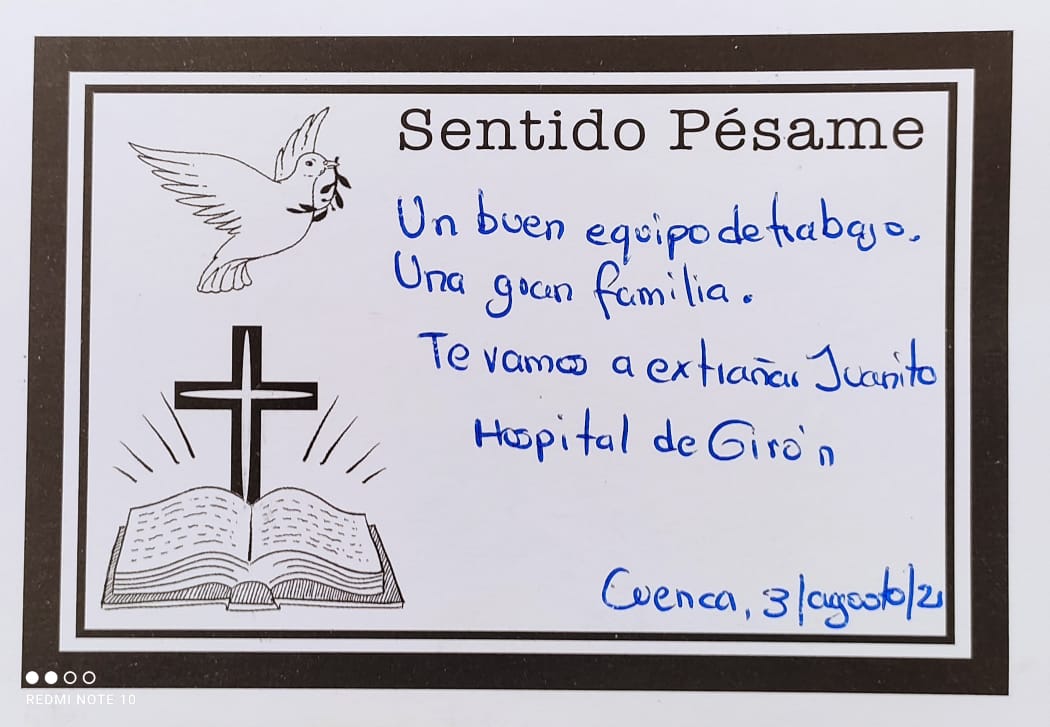 Sentido Pésame
Un buen equipo de trabajo.
Una gran familia.
Te vamos a extrañar Juanito
Hospital de Girón
Cuenca, 3/agosto/21
REDMI NOTE 10